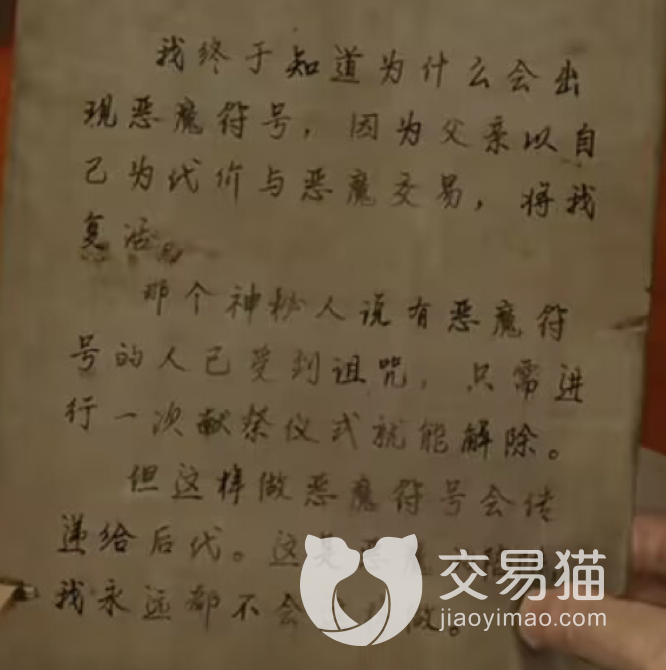 我终于知道为什么会出
现恶魔符号，因为父亲以自
己为代价与恶魔交易，将我
复活。
那个神秘人说有恶魔符
号的人已受到诅咒，只需进
行一次献祭仪式就能解除。
但这样做恶魔符号会传
递给后代。这
我永远都不会做。
交易猫
jiaoyimao.com